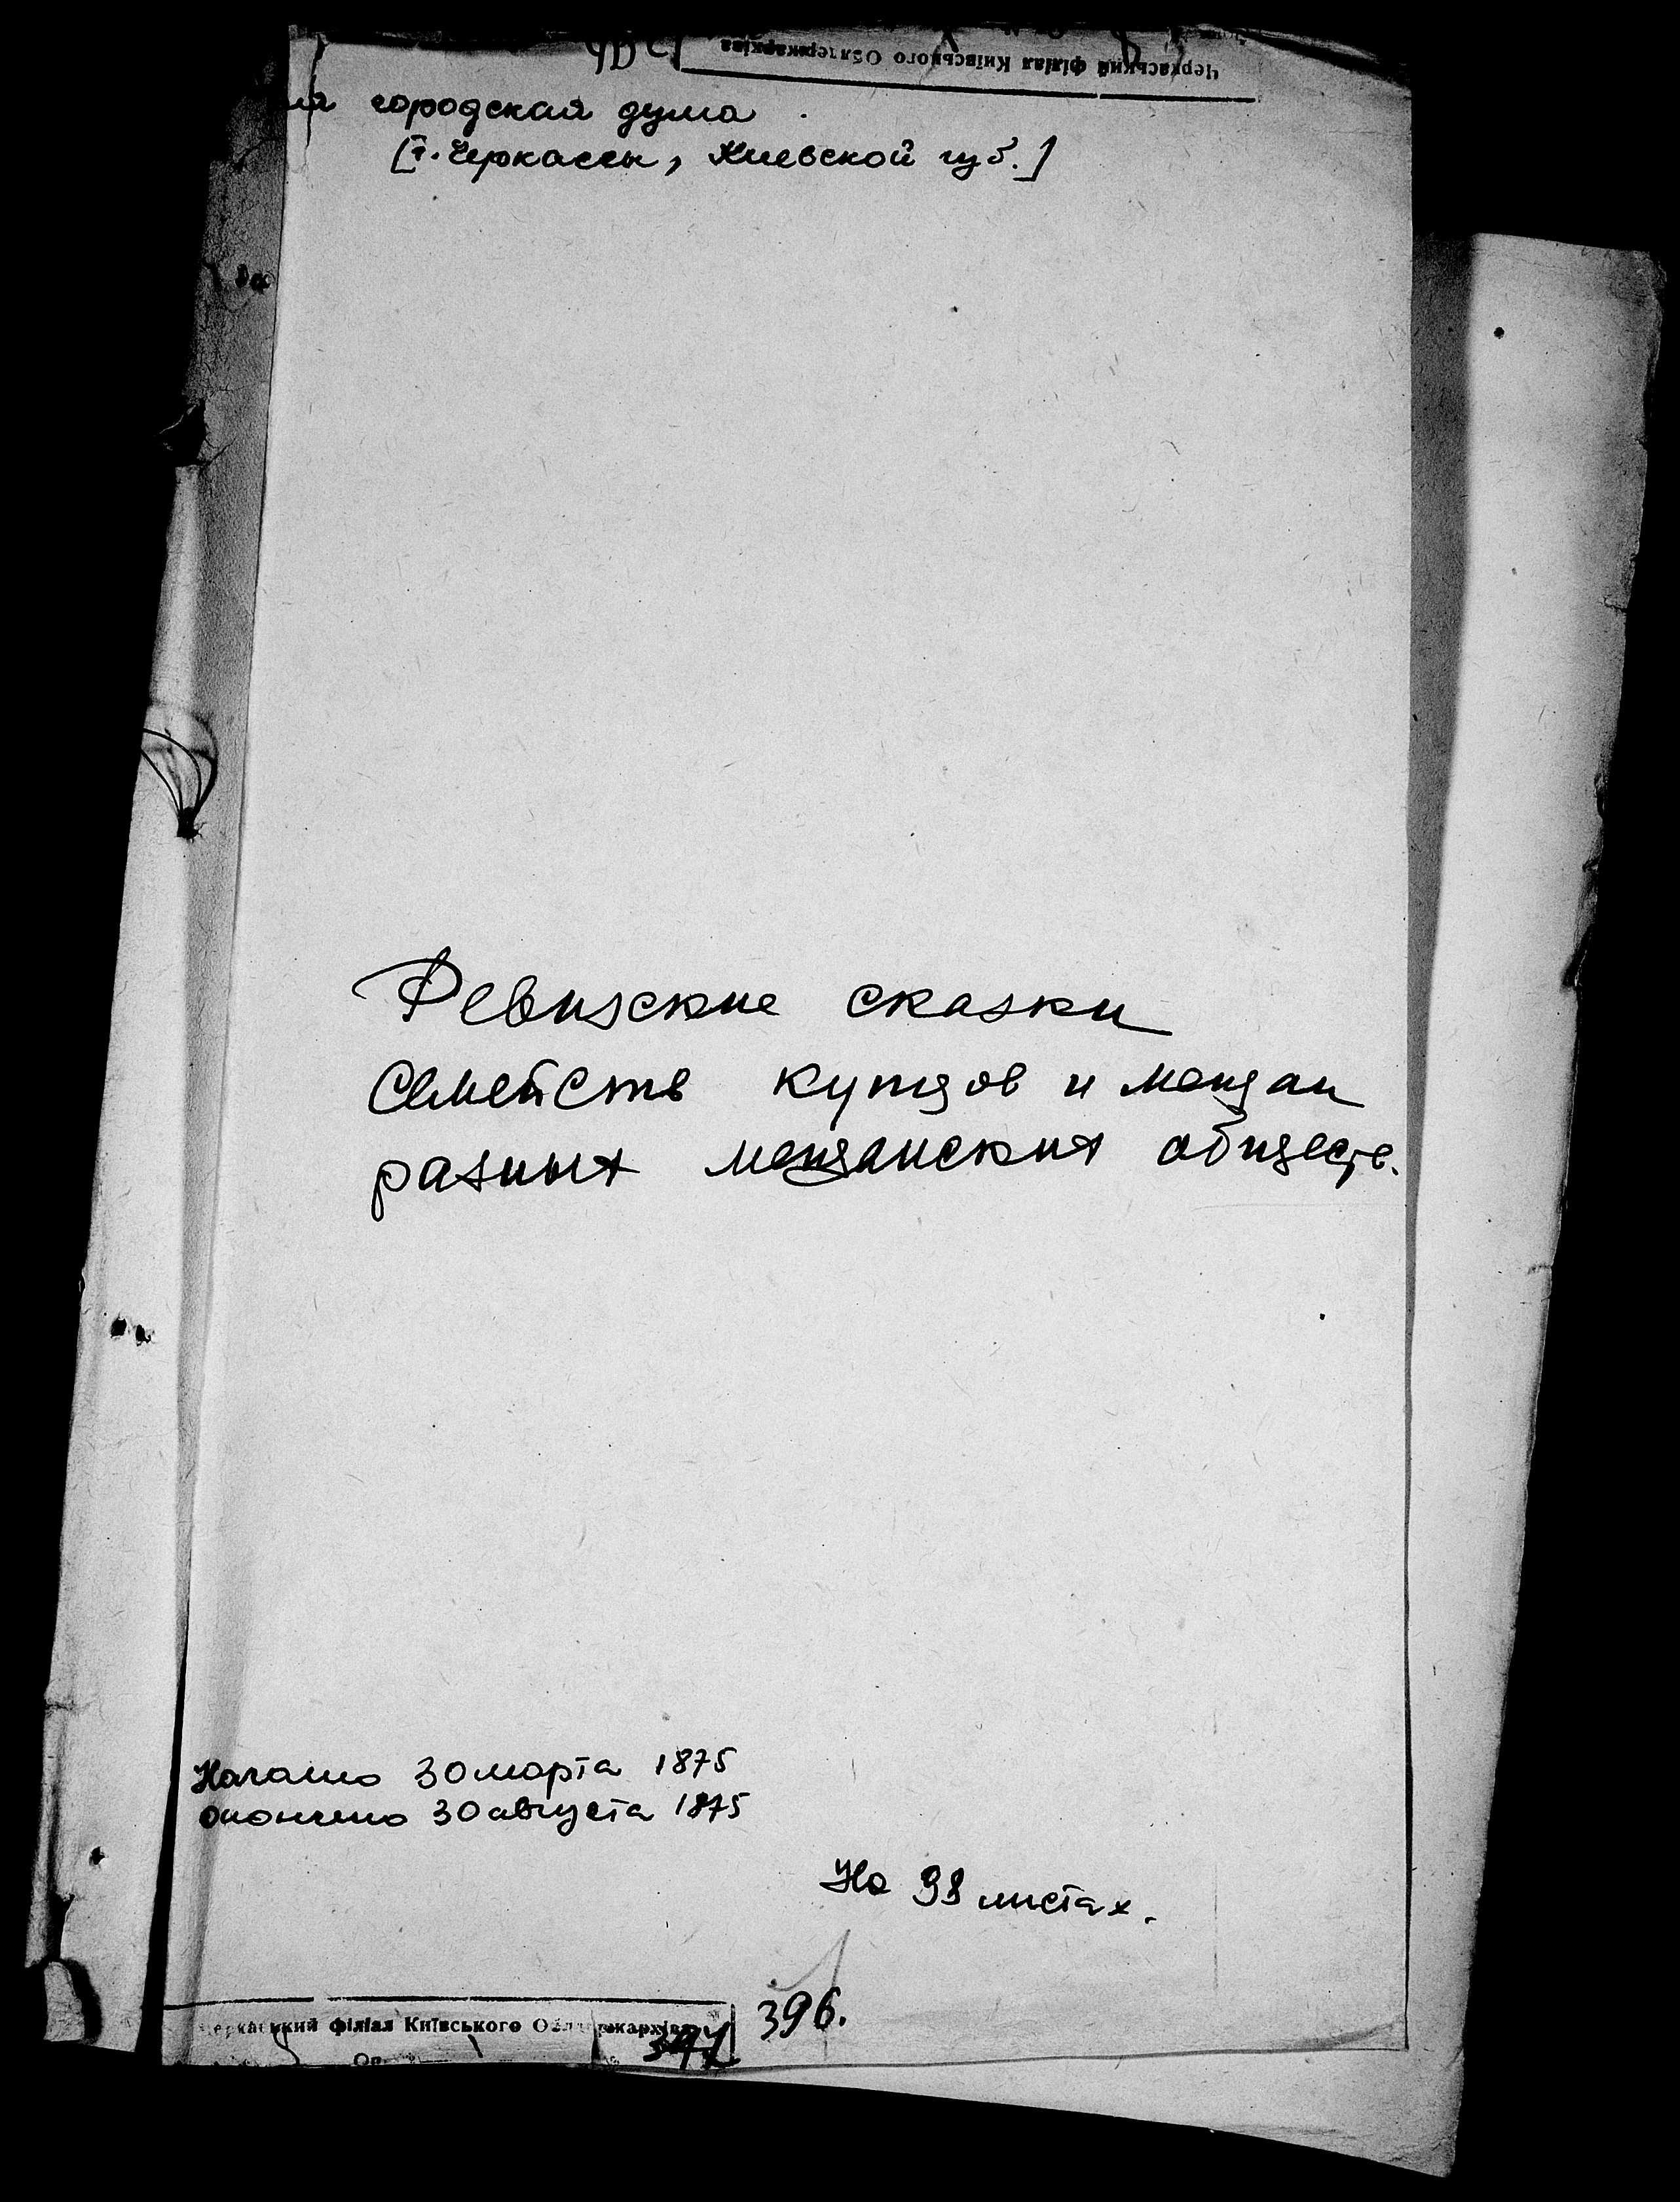 Черкаський філіал Київського Облдержархіва
городская дума
[г. Черкассы, Киевской губ.]
Ревизские сказки
семейств купцов и мещан
разных мещанских обществ.
Начато 30 марта 1875
Окончено 30 августа 1875
На 98 листах.
396.
Черкаський філіал Київського Облдержархіва
Оп.